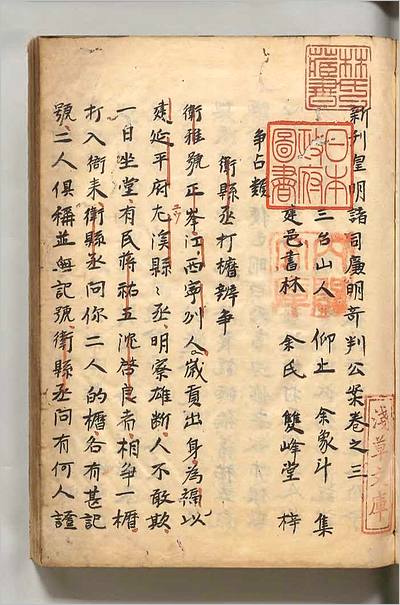 林氏藏書
日本政府圖書
新刊皇明諸司廉明奇判公案卷之三
三台山人 仰止 余象斗 集
建邑書林 余氏 雙峰堂 梓
争占類
衛縣丞打櫃辨争
衛雅號正峯江西寧州人歲貢出身為福以
建延平府尤溪縣々丞明察雄斷人不敢欺
一日坐堂有民蒋祐五沈啓良者相争一櫃
打入衙来衛縣丞問你二人的櫃各有甚記
號二人俱稱並無記號衛縣丞問有何人證
淺草文庫